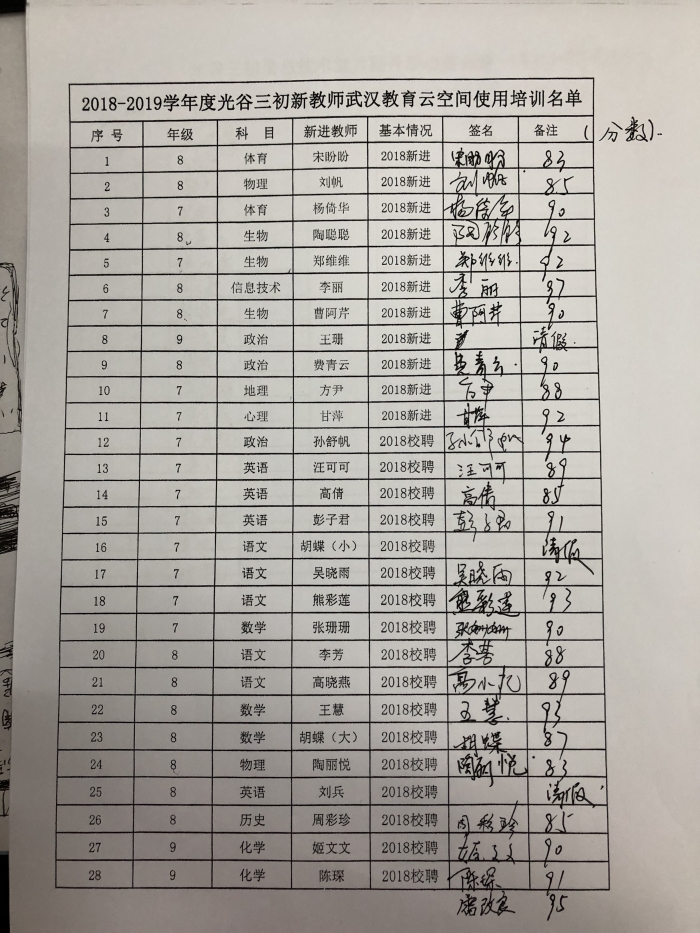 2018-2019学年度光谷三初新教师武汉教育云空间使用培训名单
序号 年级 科目 新进教师 基本情况 签名 备注 (分数).
1 8 体育 宋盼盼 2018新进 宋盼盼 83
2 8 物理 刘帆 2018新进 刘帆 85
3 7 体育 杨倚华 2018新进 杨倚华 90
4 8 生物 陶聪聪 2018新进 92
5 7 生物 郑维维 2018新进 郑维维 92
6 8 信息技术 李丽 2018新进 李丽 97
7 8 生物 曹阿芹 2018新进 曹阿芹 90
8 9 政治 王珊 2018新进 请假
9 8 政治 费青云 2018新进 费青云 90
10 7 地理 方尹 2018新进 方尹 88
11 7 心理 甘萍 2018新进 甘萍 92
12 7 政治 孙舒帆 2018校聘 孙舒帆 94
13 7 英语 汪可可 2018校聘 汪可可 89
14 7 英语 高倩 2018校聘 高倩 85
15 7 英语 彭子君 2018校聘 彭子君 91
16 7 语文 胡蝶（小） 2018校聘 请假
17 7 语文 吴晓雨 2018校聘 吴晓雨 92
18 7 语文 熊彩莲 2018校聘 熊彩莲 93
19 7 数学 张珊珊 2018校聘 张珊珊 90
20 8 语文 李芳 2018校聘 李芳 88
21 8 语文 高晓燕 2018校聘 89
22 8 数学 王慧 2018校聘 王慧 93
23 8 数学 胡蝶（大） 2018校聘 胡蝶 87
24 8 物理 陶丽悦 2018校聘 陶丽悦 83
25 8 英语 刘兵 2018校聘 请假
26 8 历史 周彩珍 2018校聘 周彩珍 85
27 9 化学 姬文文 2018校聘 姬文文 90
28 9 化学 陈琛 2018校聘 陈琛 91
95